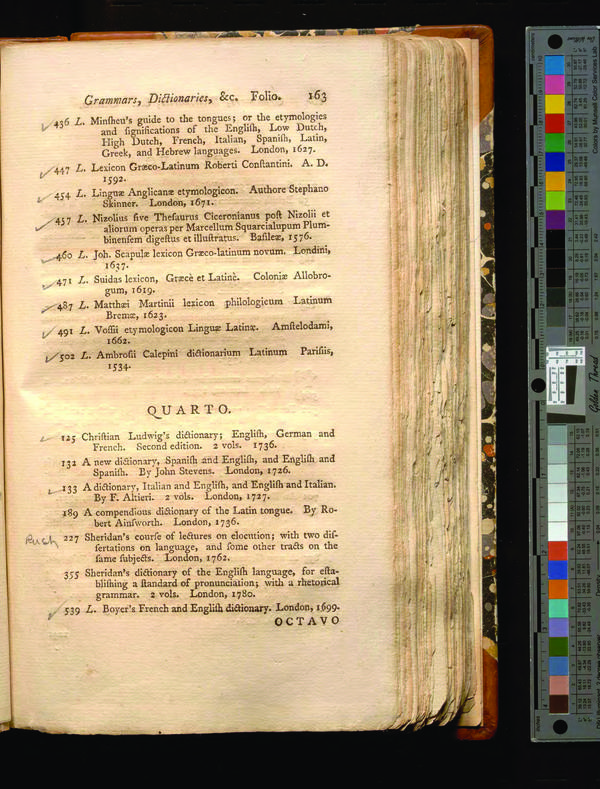 Grammars, Dictionaries, &c. Folio. 163
436 L. Minſheu's guide to the tongues; or the etymologies
and ſignifications of the Engliſh, Low Dutch,
High Dutch, French, Italian, Spaniſh, Latin,
Greek, and Hebrew languages. London, 1627.
447 L. Lexicon Græco-Latinum Roberti Conſtantini. A. D.
1592.
454 L. Linguæ Anglicanæ etymologicon. Authore Stephano
Skinner. London, 1671.
457 L. Nizolius ſive Theſaurus Ciceronianus poſt Nizolii et
aliorum operas per Marcellum Squarcialupum Plum-
binenſem digeſtus et illuſtratus. Baſileæ, 1576.
460 L. Joh. Scapulæ lexicon Græco-latinum novum. Londini,
1637.
471 L. Suidas lexicon, Græcè et Latinè. Coloniæ Allobro-
gum, 1619.
487 L. Matthæi Martinii lexicon philologicum Latinum
Bremæ, 1623.
491 L. Voſſii etymologicon Linguæ Latinæ. Amſtelodami,
1662.
502 L. Ambroſii Calepini dictionarium Latinum Pariſiis,
1534.
QUARTO.
125 Chriſtian Ludwig's dictionary; Engliſh, German and
French. Second edition. 2 vols. 1736.
132 A new dictionary, Spaniſh and Engliſh, and Engliſh and
Spaniſh. By John Stevens. London, 1726.
133 A dictionary, Italian and Engliſh, and Engliſh and Italian.
By F. Altieri. 2 vols. London, 1727.
189 A compendious dictionary of the Latin tongue. By Ro-
bert Ainſworth. London, 1736.
Rush 227 Sheridan's courſe of lectures on elocution; with two diſ-
ſertations on language, and ſome other tracts on the
ſame ſubjects. London, 1762.
355 Sheridan's dictionary of the Engliſh language, for eſta-
bliſhing a ſtandard of pronunciation; with a rhetorical
grammar. 2 vols. London, 1780.
539 L. Boyer's French and Engliſh dictionary. London, 1699.
OCTAVO
Colors by Munsell Color Services Lab
Golden Thread